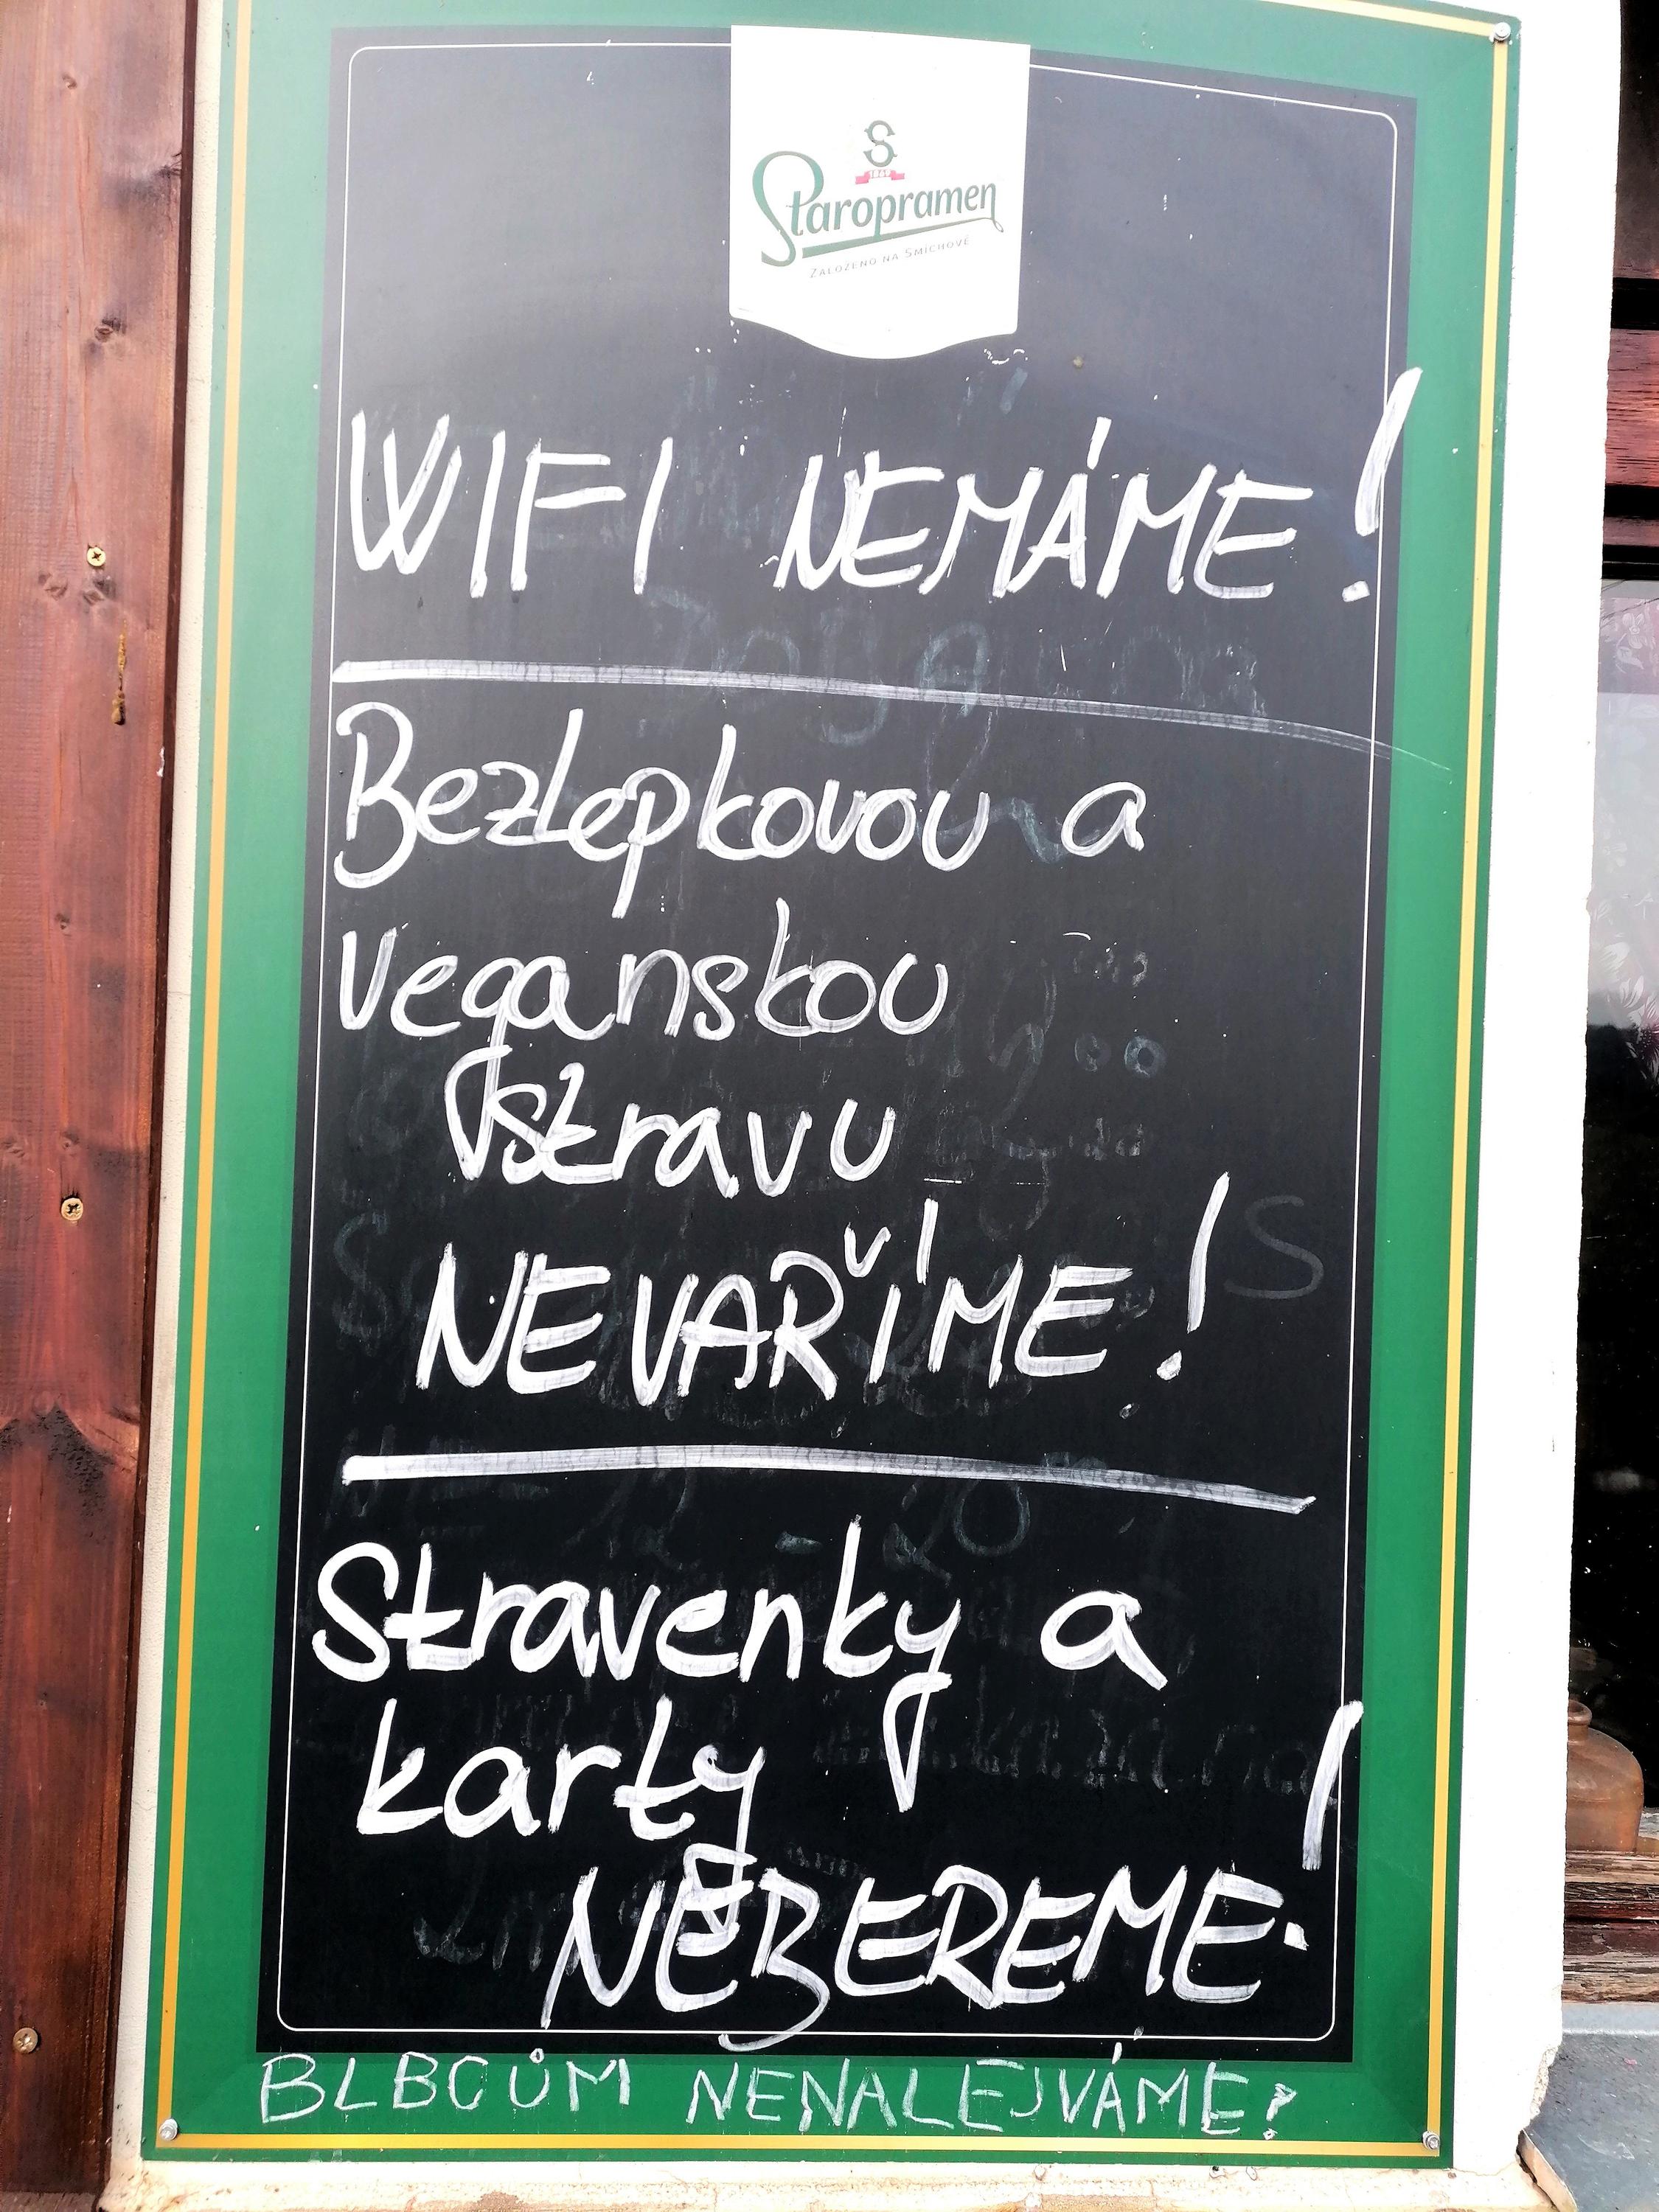 S
1869
Staropramen
ZALOŽENO NA SMÍCHOVĚ
WIFI NEMÁME!
Bezlepkovou a
veganskou
stravu
NEVAŘÍME!
Stravenky a
karty
NEBEREME!
BLBCŮM NENALEJVÁME?